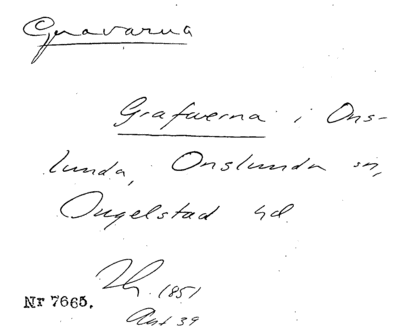 Gravarna
Grafwerna i Ons-
lunda, Onslunda sn,
Ingelstad hd
1851
Nr 7665.
Ant 39